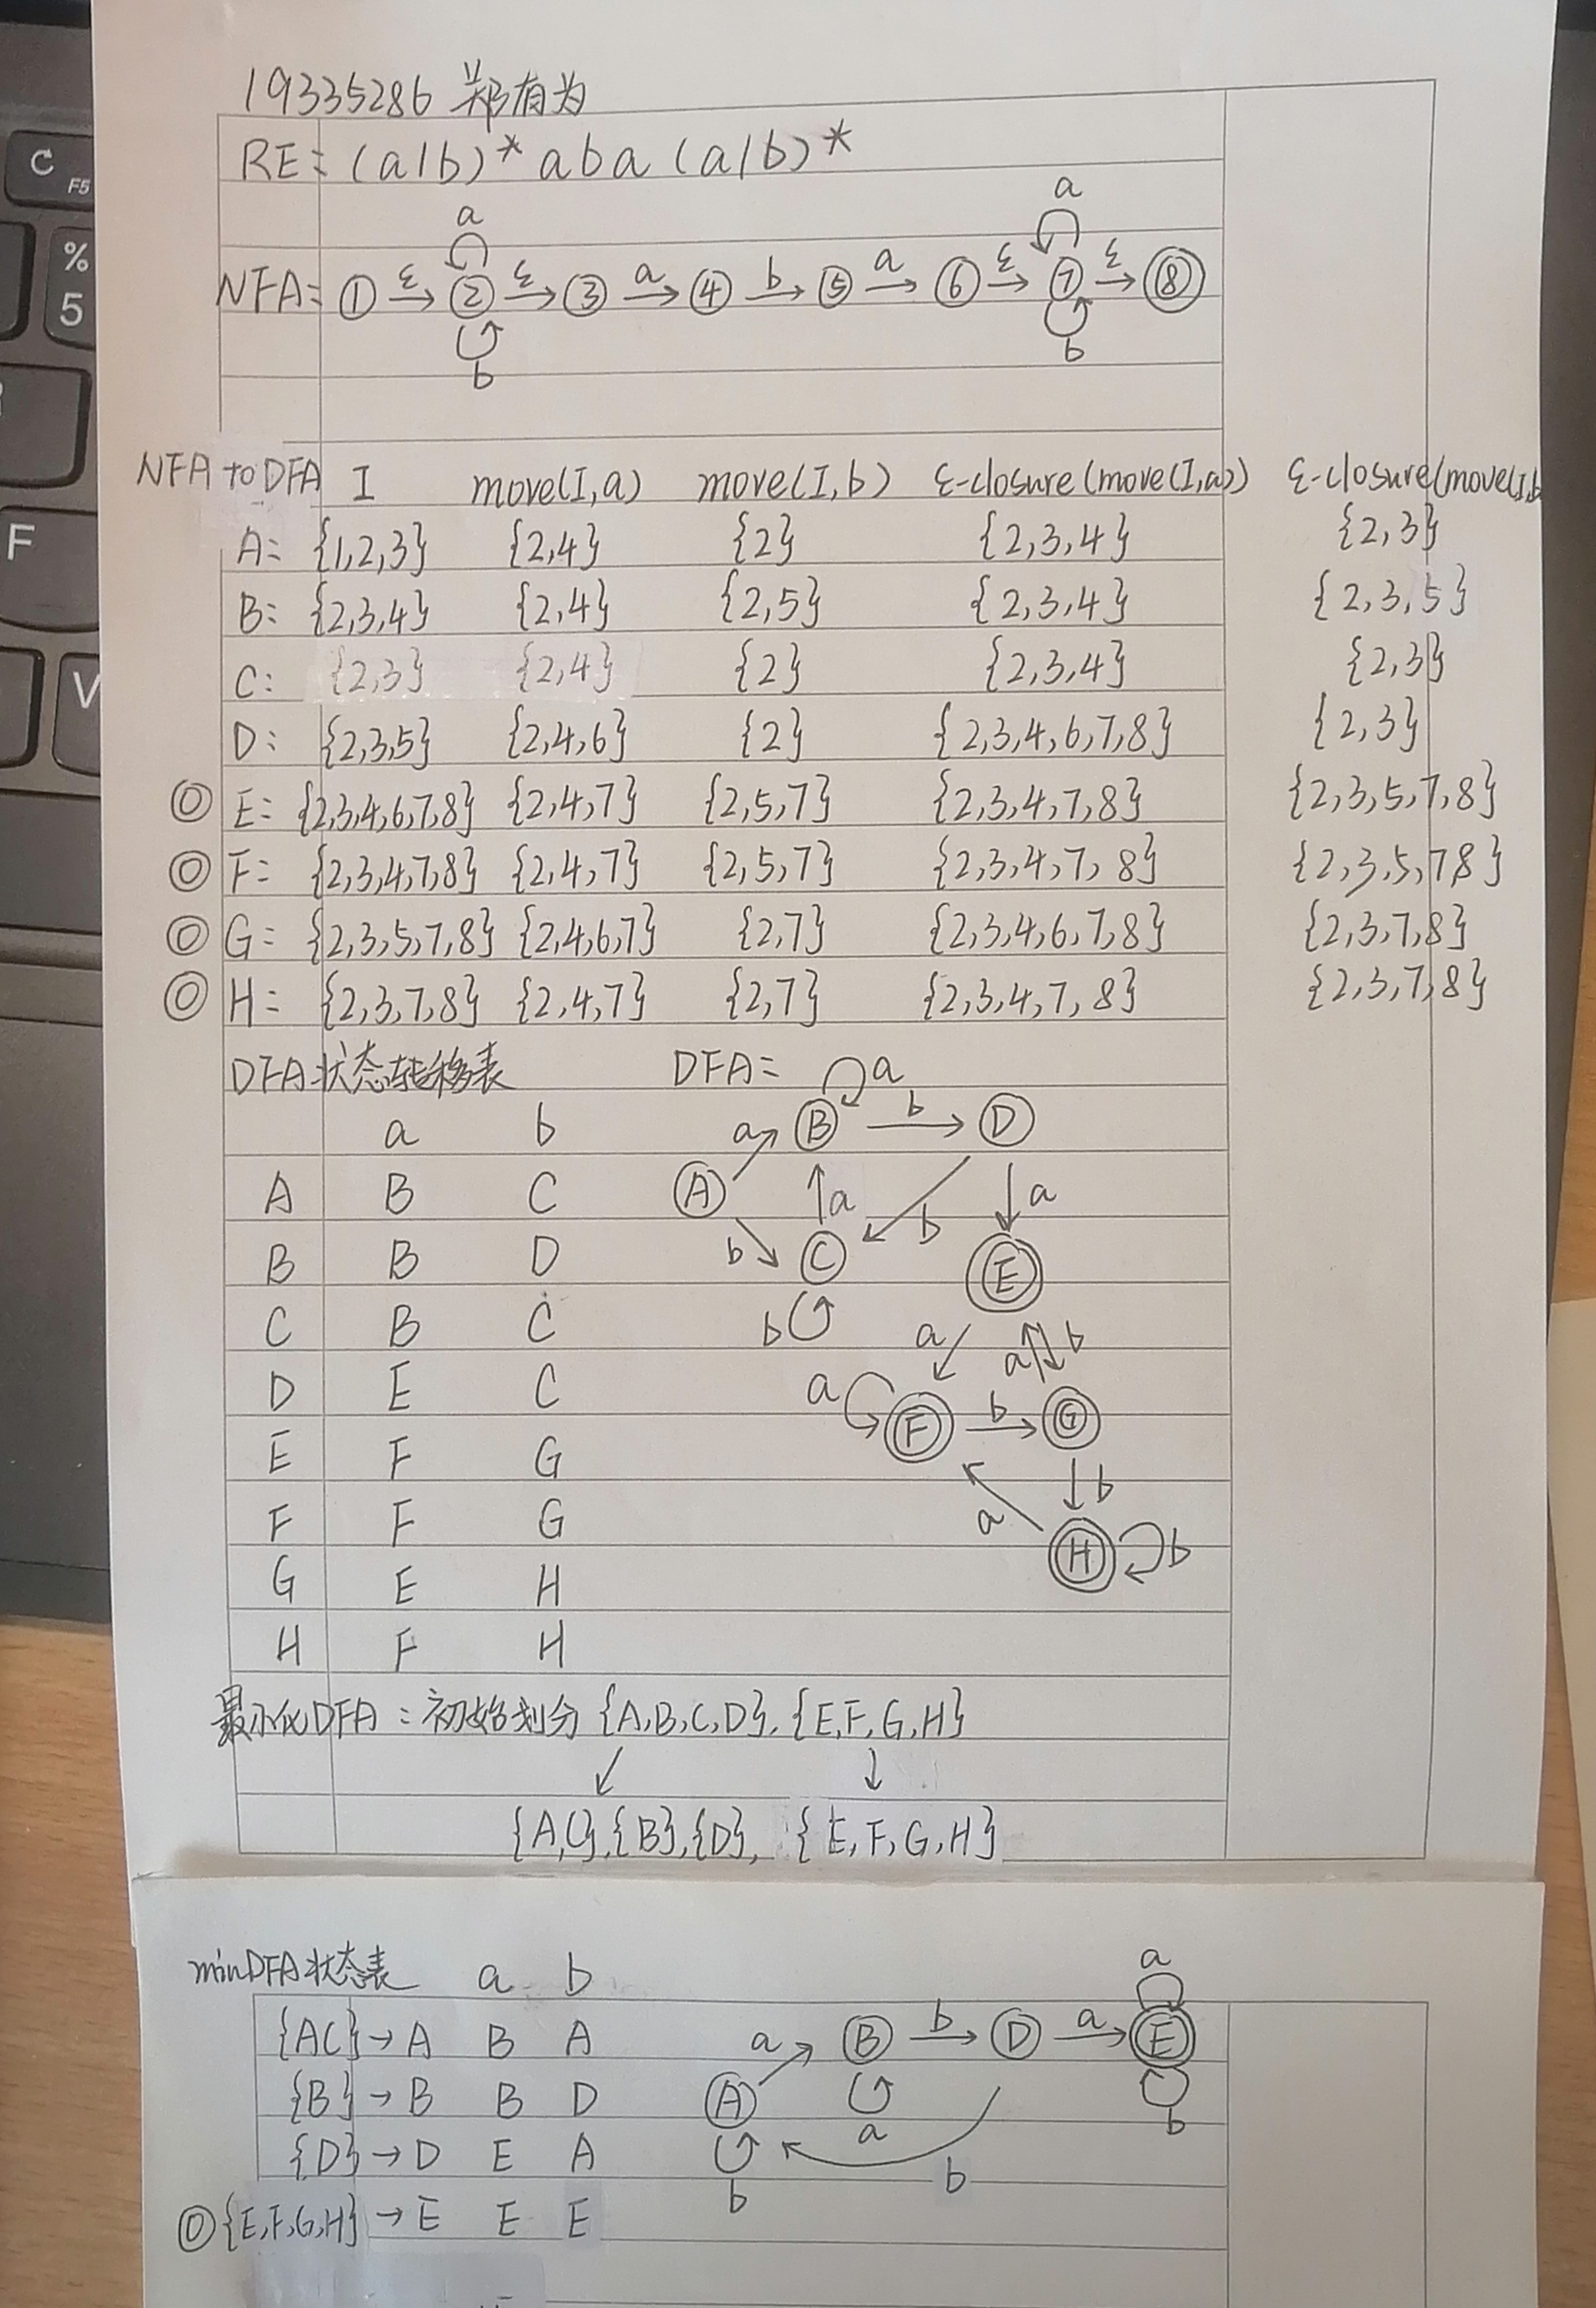 19335286 郑有为
RE: (a|b)* aba (a|b)*
a a
NFA: 1 ε 2 ε 3 a 4 b 5 a 6 ε 7 ε 8
b b
NFA to DFA I move(I,a) move(I,b) ε-closure(move(I,a)) ε-closure(move(I,b
A: {1,2,3} {2,4} {2} {2,3,4} {2,3}
B: {2,3,4} {2,4} {2,5} {2,3,4} {2,3,5}
C: {2,3} {2,4} {2} {2,3,4} {2,3}
D: {2,3,5} {2,4,6} {2} {2,3,4,6,7,8} {2,3}
◎ E: {2,3,4,6,7,8} {2,4,7} {2,5,7} {2,3,4,7,8} {2,3,5,7,8}
◎ F: {2,3,4,7,8} {2,4,7} {2,5,7} {2,3,4,7,8} {2,3,5,7,8}
◎ G: {2,3,5,7,8} {2,4,6,7} {2,7} {2,3,4,6,7,8} {2,3,7,8}
◎ H: {2,3,7,8} {2,4,7} {2,7} {2,3,4,7,8} {2,3,7,8}
DFA状态转移表 DFA: a
a b a B b D
A B C A a b a
B B D b C E
C B C b a a b
D E C a
E F G F b G
F F G a b
G E H H b
H F H
最小化DFA: 初始划分 {A,B,C,D}, {E,F,G,H}
↓ ↓
{A,C}, {B}, {D}, {E,F,G,H}
minDFA状态表 a b a
{AC} → A B A a B b D a E
{B} → B B D A a b
{D} → D E A b b
◎ {E,F,G,H} → E E E